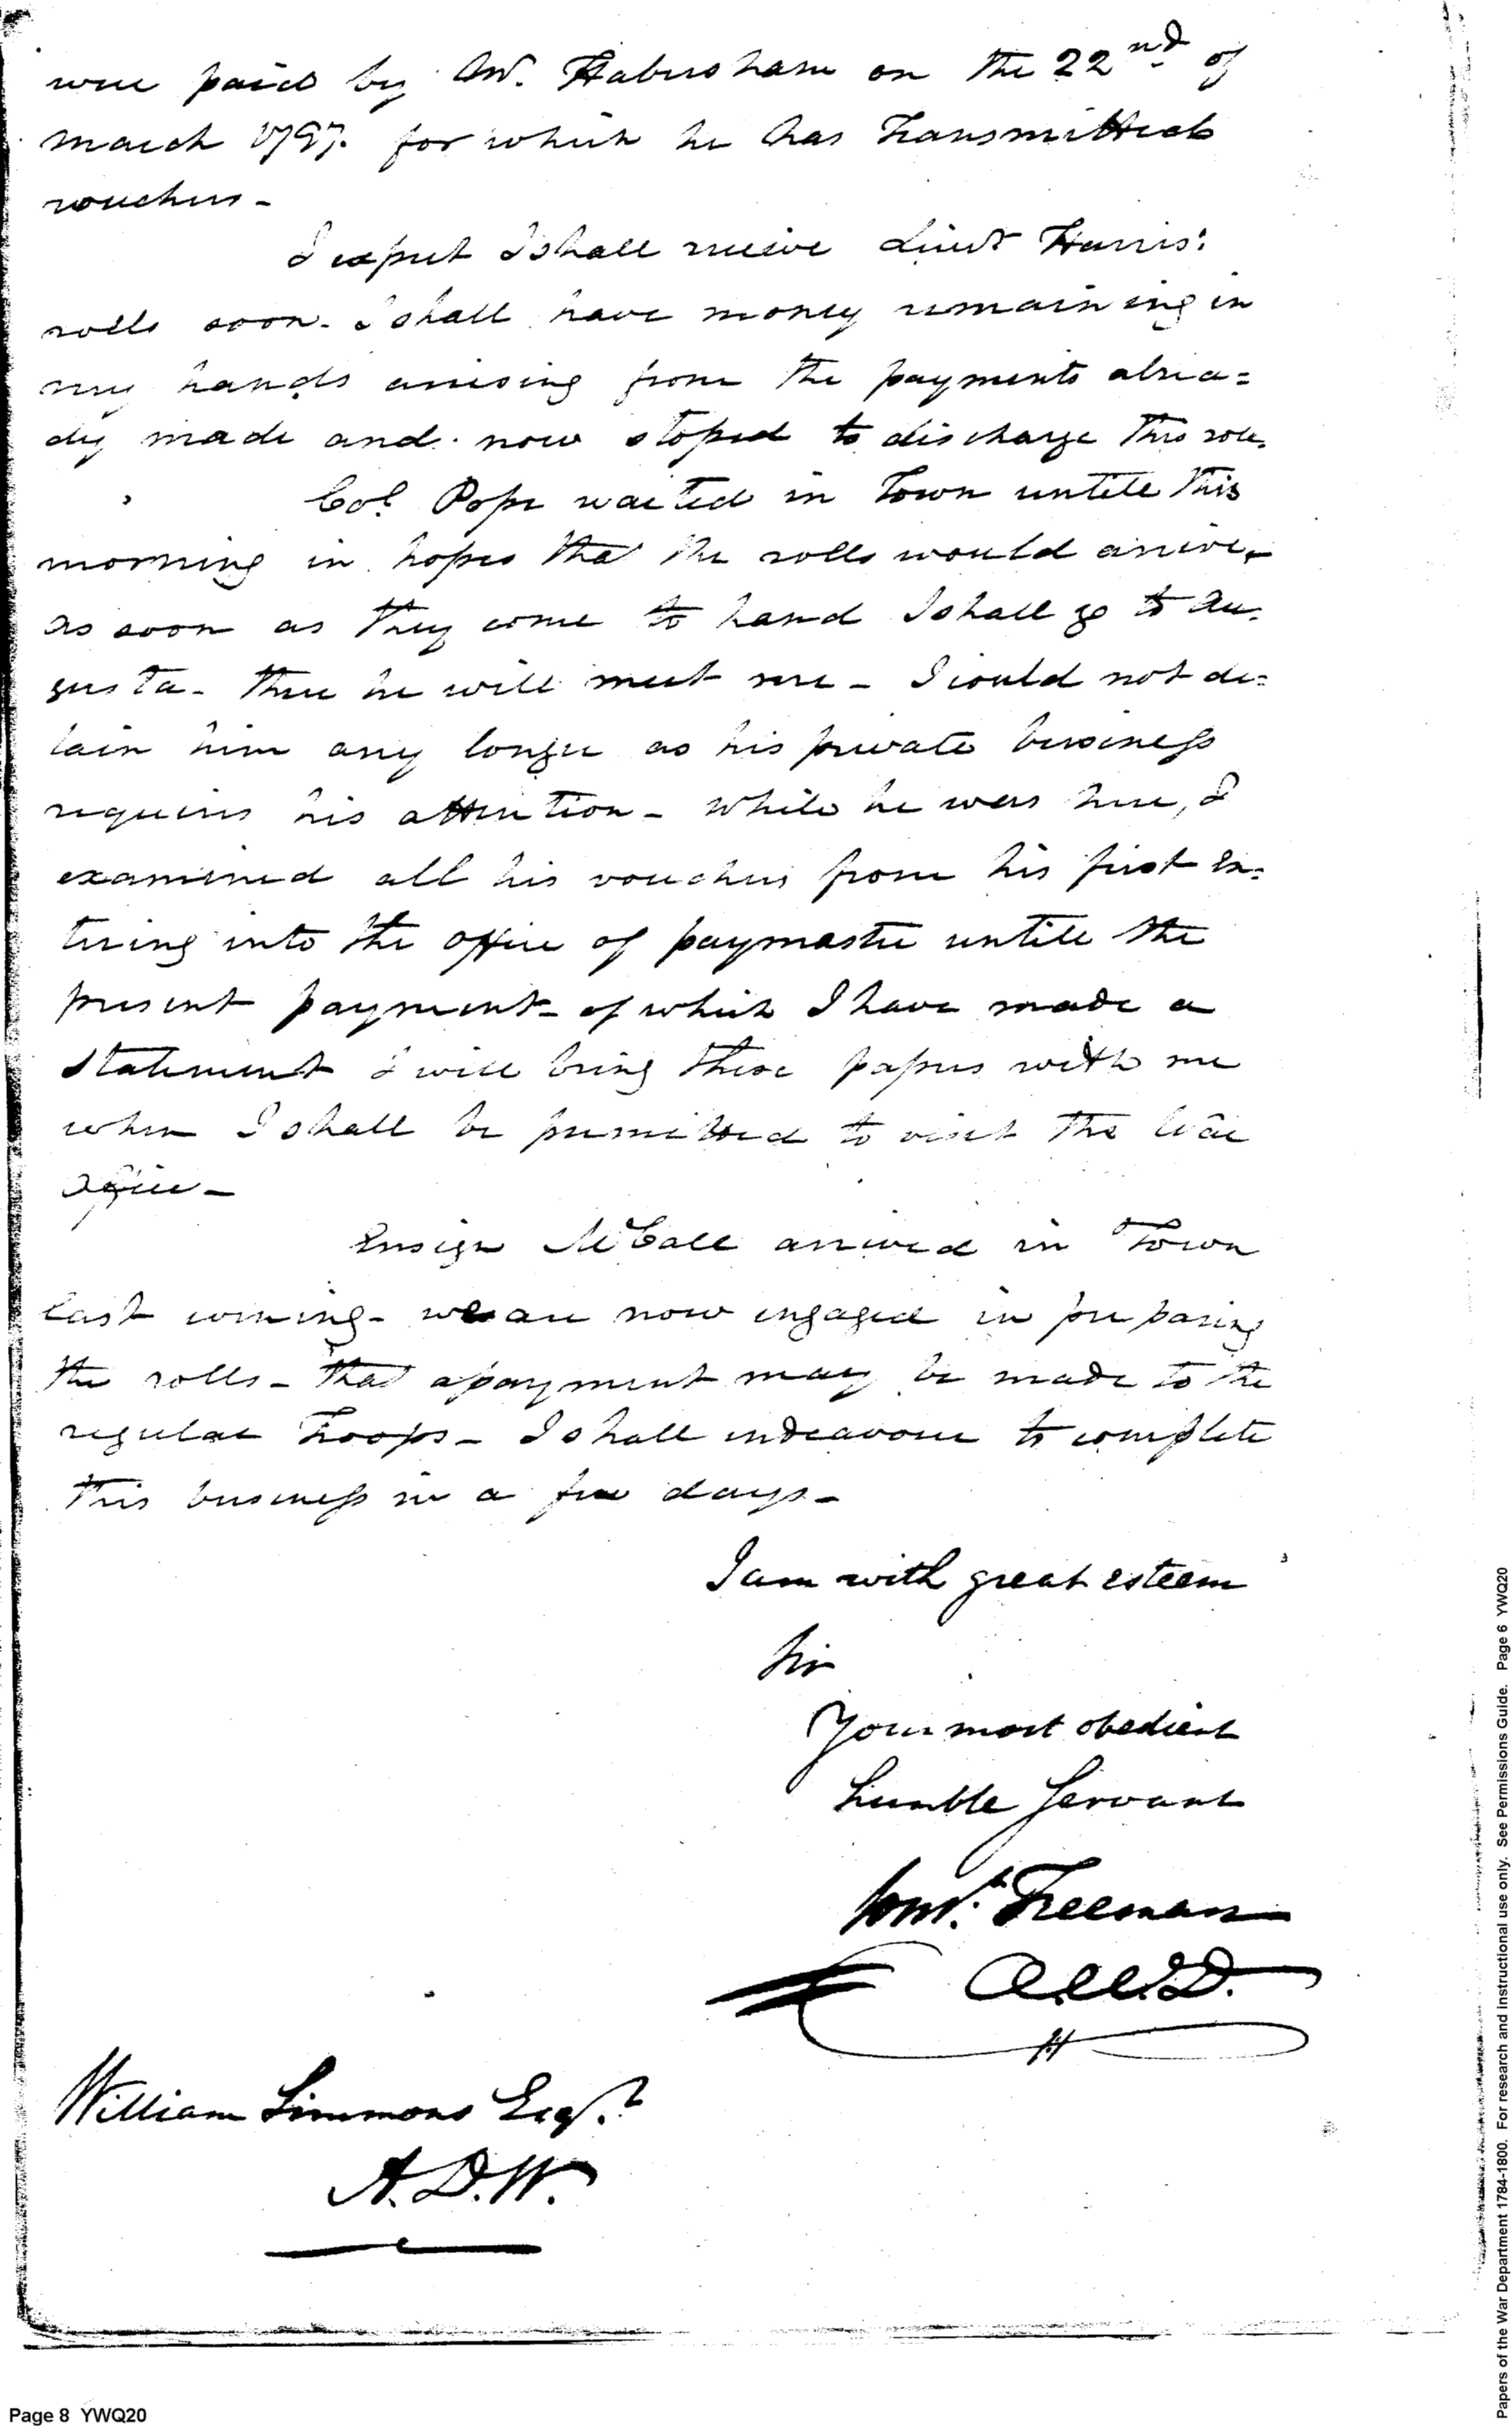 were paid by Mr. Habersham on the 22nd of
march 1797. for which he has Transmitted
vouchers-
I expect I shall receive Lieut Harris'
rolls soon. I shall have money remaining in
my hands arising from the payments alrea=
dy made and now stoped to discharge this role.
Col. Pope waited in Town untill this
morning in hopes that the rolls would arrive,
as soon as they come to hand I shall go to Au=
gusta- there he will meet me- I could not de=
tain him any longer as his private business
requires his attention- while he was here, I
examined all his vouchers from his first en=
tering into the office of paymaster untill the
present payment- of which I have made a
statement I will bring these papers with me
when I shall be permitted to visit the War
office-
Ensign McCall arrived in Town
last evening- we are now engaged in preparing
the rolls- that a payment may be made to the
regular Troops- I shall endeavour to complete
this business in a few days-
I am with great esteem
Sir
Your most obedient
humble Servant
Const. Freeman
A.W.D.
William Simmons Esqr.
A.D.W.
Page 8 YWQ20
Papers of the War Department 1784-1800. For research and instructional use only. See Permissions Guide. Page 6 YWQ20